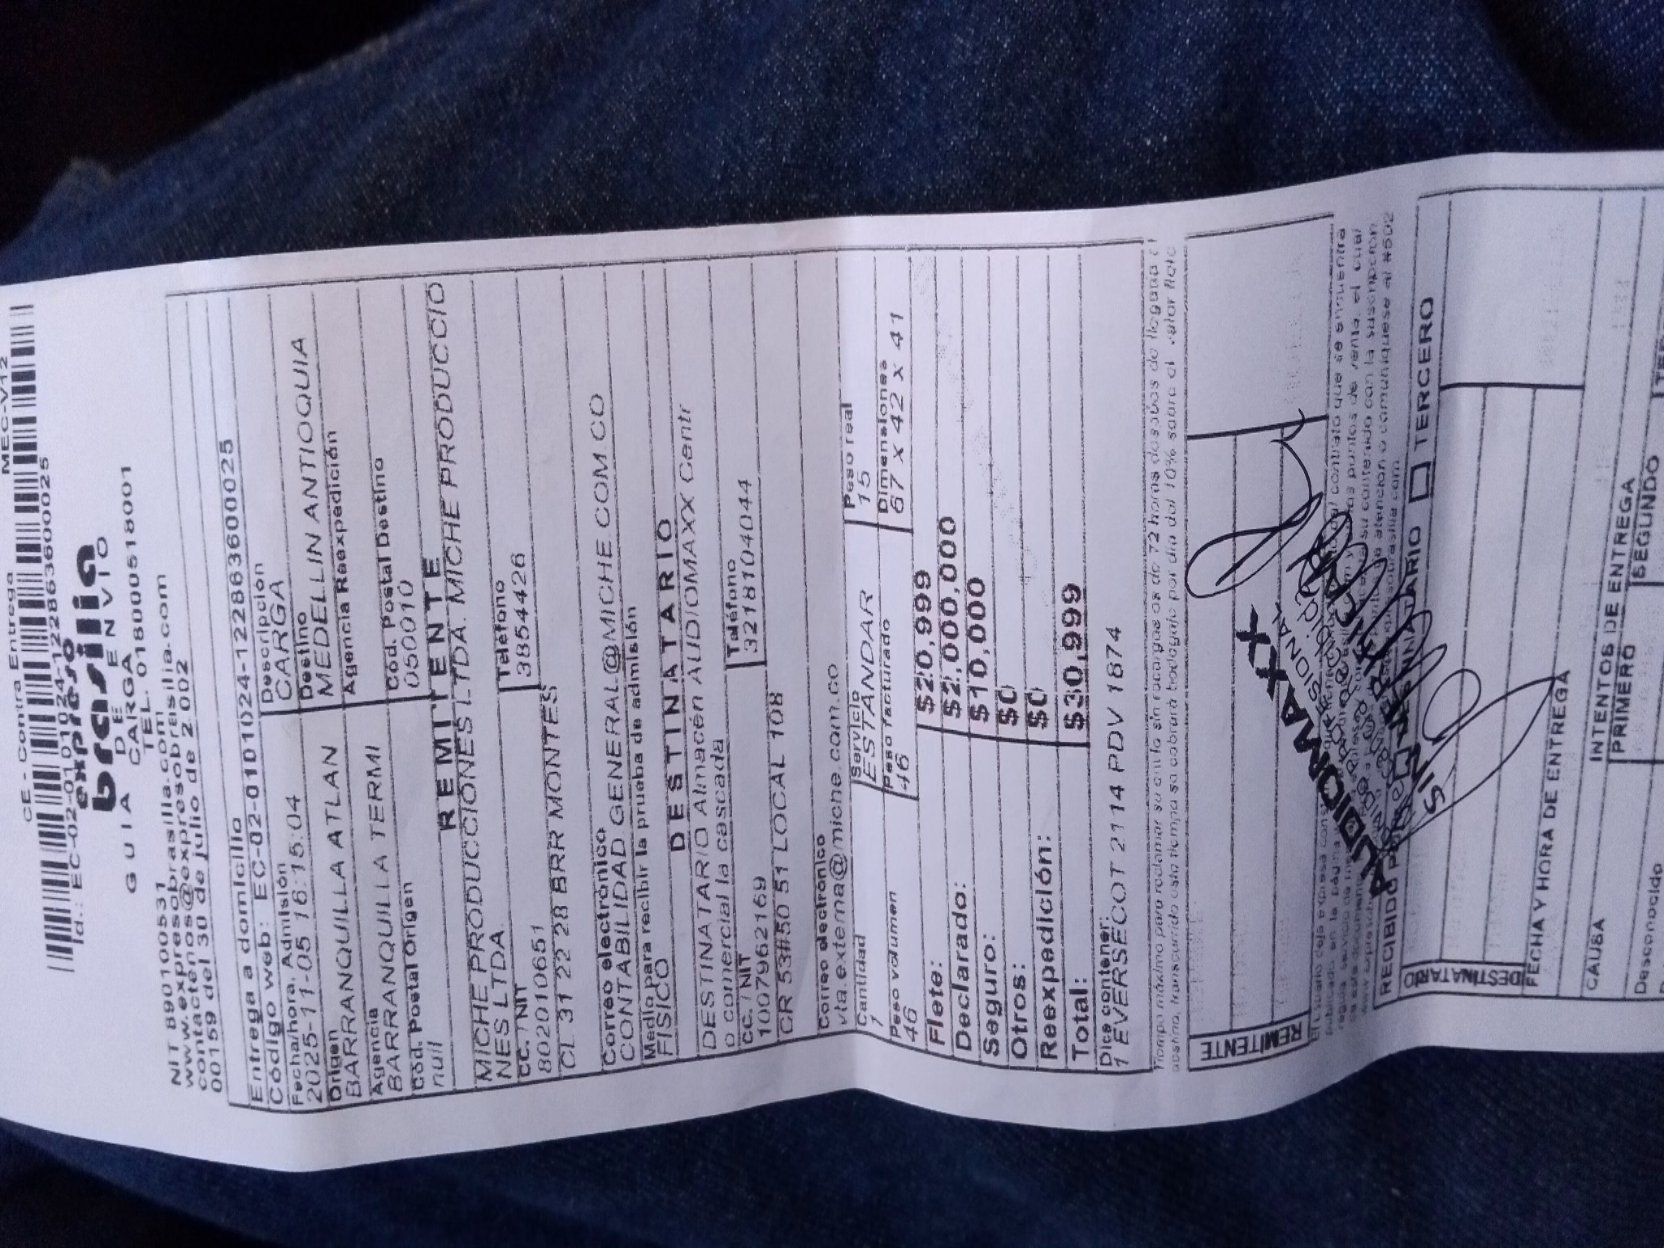 MEC-V12
CE - Contra Entrega
Id.: EC-02-0101024-1228636000025
expreso
brasilia
GUIA DE ENVIO
CARGA
TEL. 018000518001
NIT 890100531
www.expresobrasilia.com
contactenos@expresobrasilia.com
00159 del 30 de julio de 2.002
Entrega a domicilio
Código web: EC-02-0101024-1228636000025
Fecha/hora. Admisión Descripción
2025-11-05 16:15:04 CARGA
Origen Destino
BARRANQUILLA ATLAN MEDELLIN ANTIOQUIA
Agencia Agencia Reexpedición
BARRANQUILLA TERMI
Cód. Postal Origen Cód. Postal Destino
null 050010
REMITENTE
MICHE PRODUCCIONES LTDA. MICHE PRODUCCIO
NES LTDA
CC. / NIT Teléfono
802010651 3854426
CL 31 22 28 BRR MONTES
Correo electrónico
CONTABILIDAD GENERAL@MICHE.COM.CO
Medio para recibir la prueba de admisión
FISICO
DESTINATARIO
DESTINATARIO Almacén AUDIOMAXX Centr
o comercial la cascada
CC. / NIT Teléfono
1007962169 3218104044
CR 53#50 51 LOCAL 108
Correo electrónico
vta.externa@miche.com.co
Cantidad Servicio Peso real
1 ESTANDAR 15
Peso volumen Peso facturado Dimensiones
46 46 67 x 42 x 41
Flete: $20,999
Declarado: $2,000,000
Seguro: $10,000
Otros: $0
Reexpedición: $0
Total: $30,999
Dice contener:
1 EVERSECOT 2114 PDV 1874
Tiempo máximo para reclamar su envío sin recargos es de 72 horas después de llegada
destino, transcurrido este tiempo se cobrará bodegaje por día del 10% sobre el valor flete
REMITENTE
AUDIOMAXX
RECIBIDO DESTINATARIO TERCERO
SIN
DESTINATARIO
FECHA Y HORA DE ENTREGA
INTENTOS DE ENTREGA
CAUSA PRIMERO SEGUNDO
Desconocido